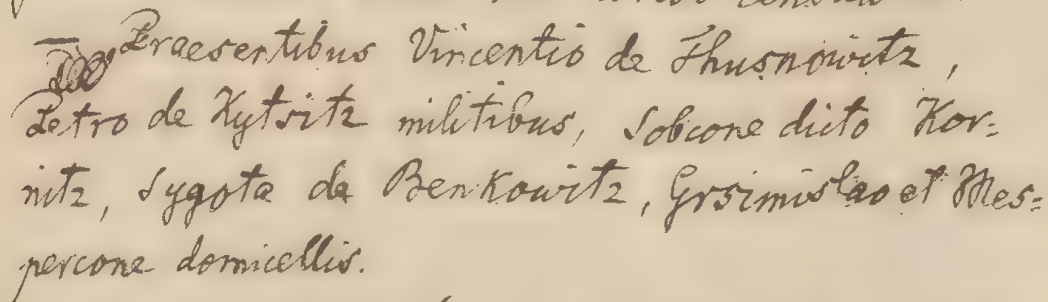 Praesentibus Vincentio de Thusnowitz,
Petro de Kytsitz militibus, Sobcone dicto Kor=
nitz, Sygota de Benkowitz, Grsimislao et Mes=
percone domicellis.